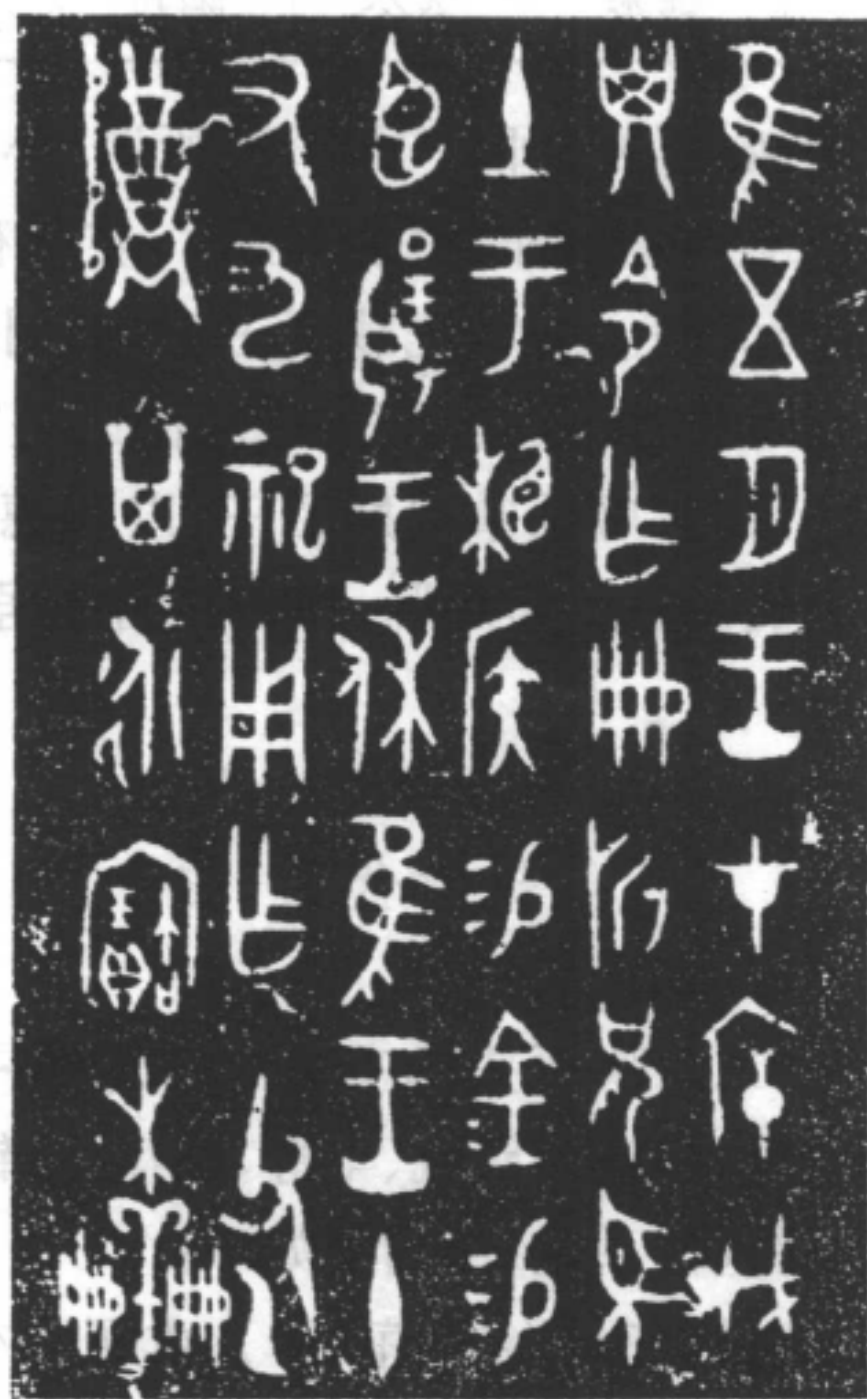 隹五月王才庰戊
子令乍冊折兄望
土于相侯易金易
臣揚王休隹王十
又九祀用乍父乙
尊其永寶木羊冊冊